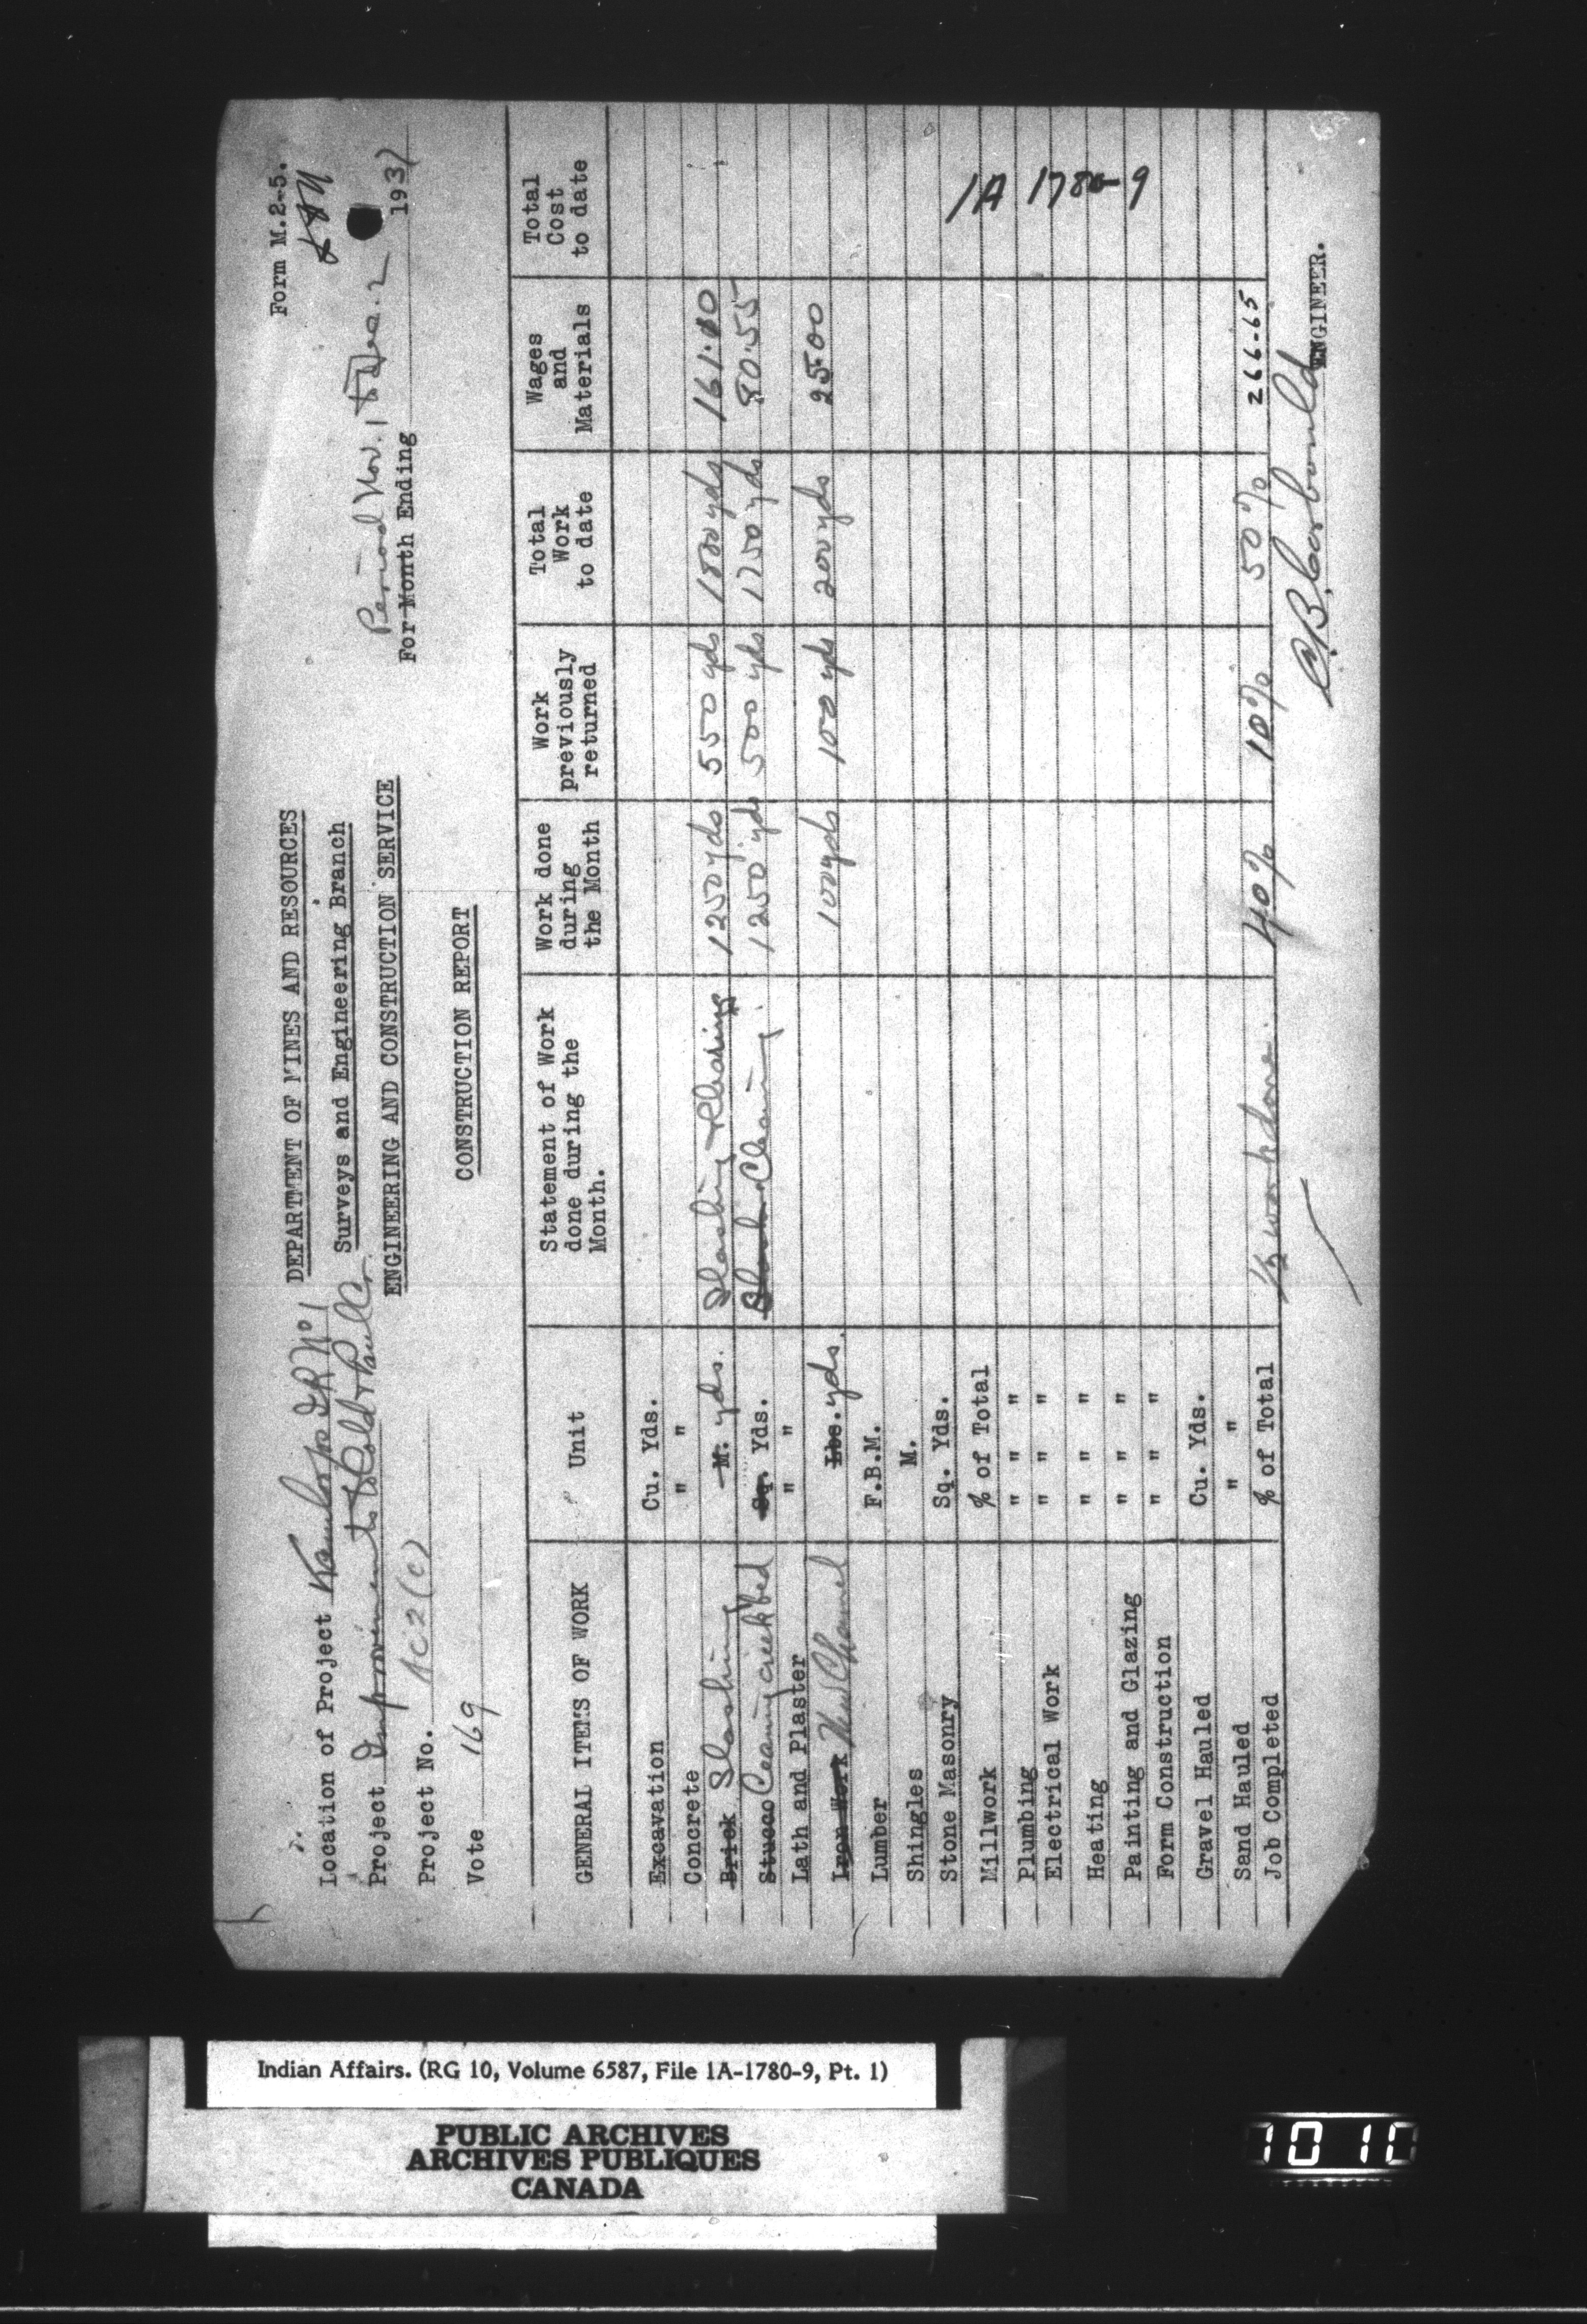 Form M.2-5.
DEPARTMENT OF MINES AND RESOURCES
Surveys and Engineering Branch
ENGINEERING AND CONSTRUCTION SERVICE
CONSTRUCTION REPORT
Location of Project Kamloops I.R. No 1
Project Improvements to Cr.
Project No. AC2(c)
Vote 169
Period Nov. 1 to Dec. 2
For Month Ending 1937
GENERAL ITEMS OF WORK Unit Statement of Work done during the Month. Work done during the Month Work previously returned Total Work to date Wages and Materials Total Cost to date
Excavation Cu. Yds.
Concrete " "
Brick Slashing M. yds. Slashing & Clearing 1250 yds 550 yds 1800 yds 161.10
Stucco creek bed Sq. Yds. Clearing 1250 yds 500 yds 1750 yds 80.55
Lath and Plaster " "
Iron Work New Channel Lbs. yds. 100 yds 100 yds 200 yds 25.00
Lumber F.B.M.
Shingles M.
Stone Masonry Sq. Yds.
Millwork % of Total
Plumbing " " "
Electrical Work " " "
Heating " " "
Painting and Glazing " " "
Form Construction " " "
Gravel Hauled Cu. Yds.
Sand Hauled " "
Job Completed % of Total 1/2 work done. 40% 10% 50% 266.65
1A 1780-9
ENGINEER.
Indian Affairs. (RG 10, Volume 6587, File 1A-1780-9, Pt. 1)
PUBLIC ARCHIVES
ARCHIVES PUBLIQUES
CANADA
1010